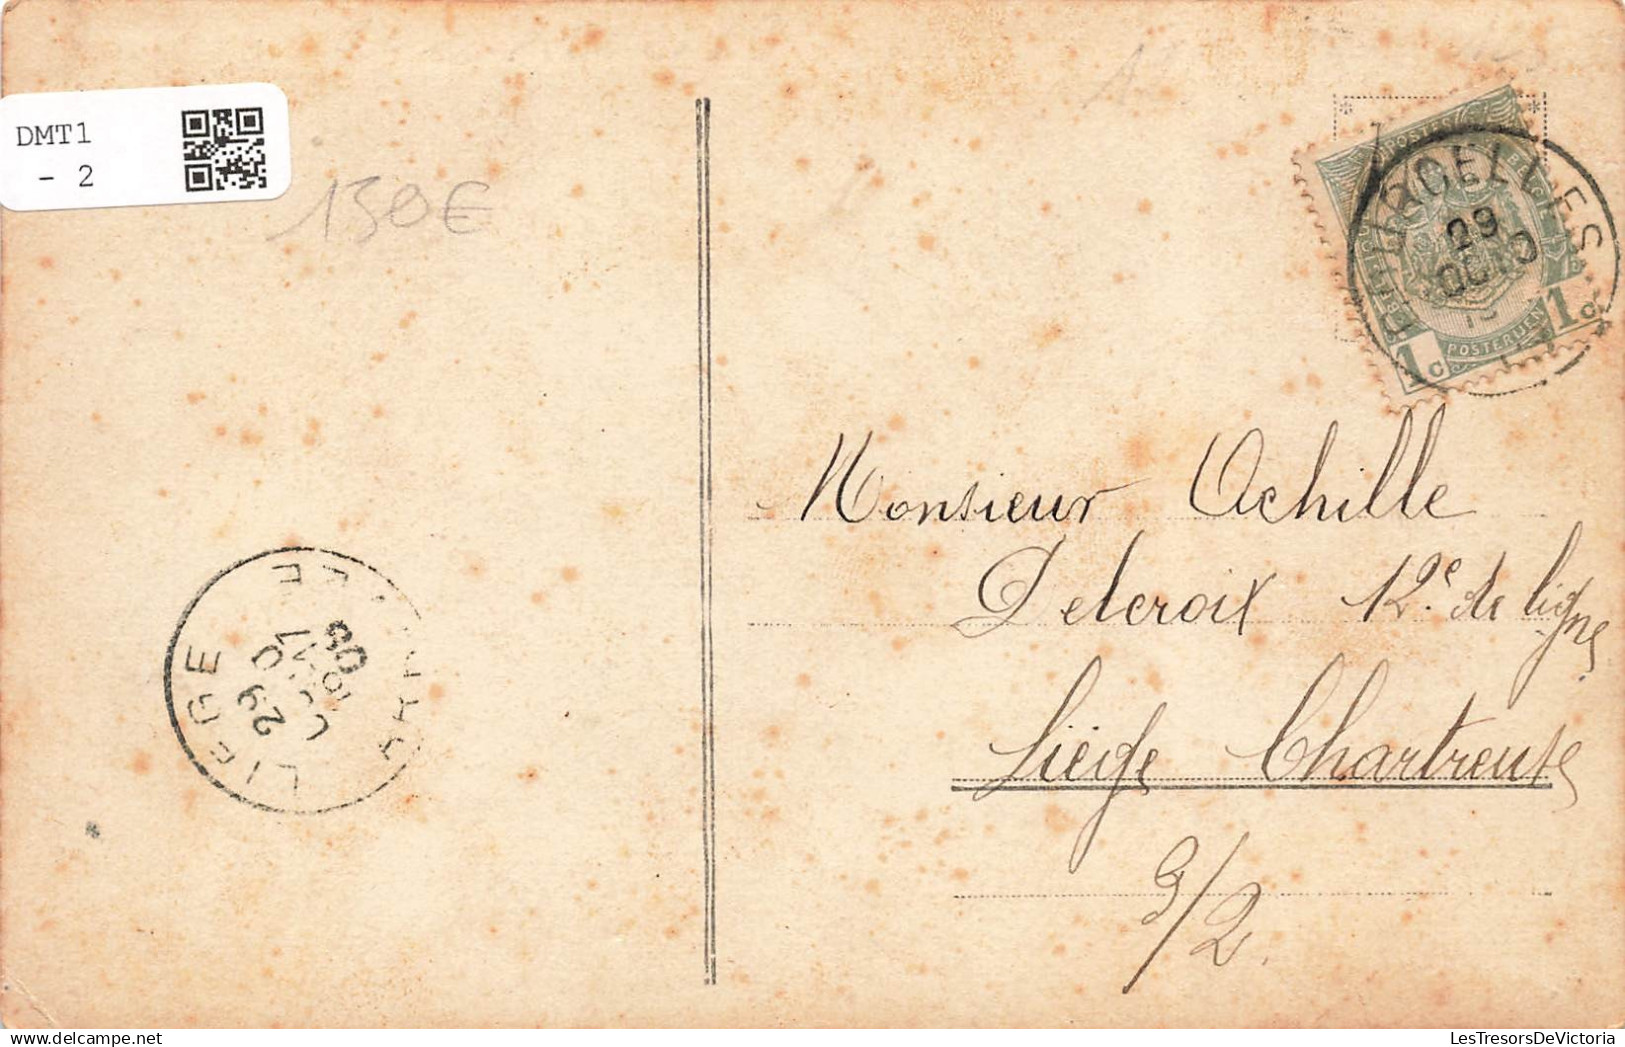 DMT1
- 2
130€
POSTES
29
OCTO
POSTERIJEN
1c
1c
Monsieur Achille
Delcroix 12e de ligne
Liège Chartreuse
9/2.
LIEGE
29 OCT
08
LesTresorsDeVictoria